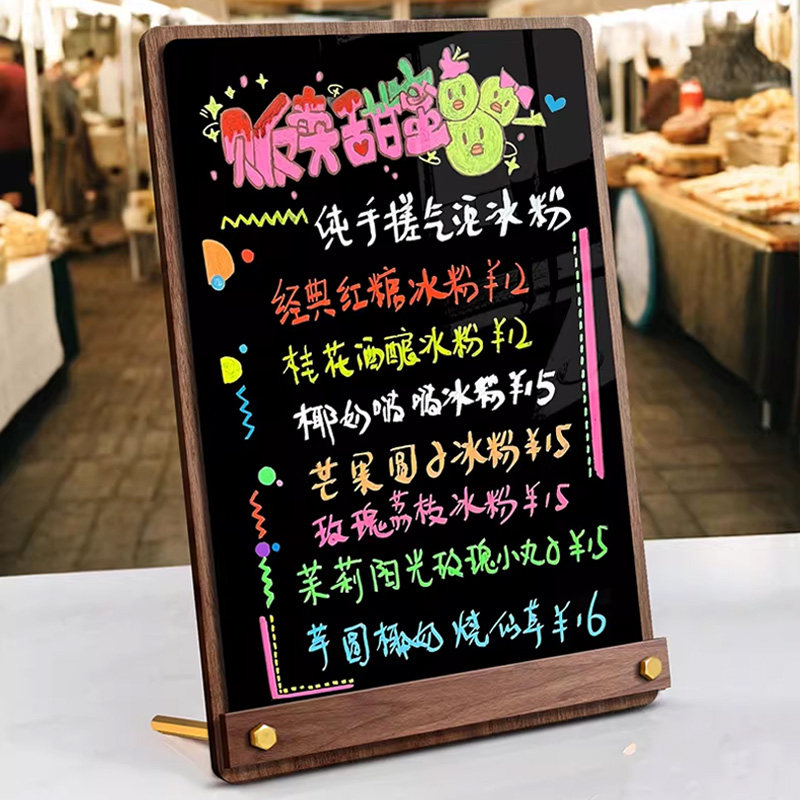 贩卖甜蜜
纯手搓气泡冰粉
经典红糖冰粉¥12
桂花酒酿冰粉¥12
椰奶啵啵冰粉¥15
芒果圆子冰粉¥15
玫瑰荔枝冰粉¥15
茉莉阳光玫瑰小丸子¥15
芋圆椰奶烧仙草¥16